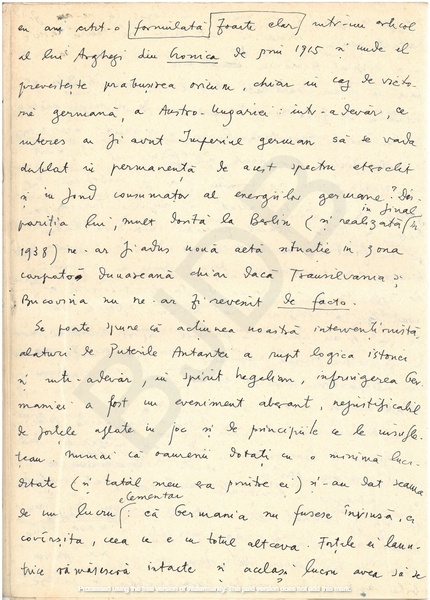 eu am citit-o formulată foarte clar într-un articol
al lui Arghezi din Cronica de prin 1915 și unde el
prevestește prăbușirea oricum, chiar în caz de victo-
rie germană, a Austro-Ungariei: într-adevăr, ce
interes ar fi avut Imperiul german să se vadă
dublat în permanență de acest spectru eteroclit
și în fond consumator al energiilor germane? Dis-
pariția lui, mult dorită la Berlin (și realizată în final în
1938) ne-ar fi adus nouă altă situație în zona
carpato dunăreană chiar dacă Transilvania și
Bucovina nu ne-ar fi revenit de facto.
Se poate spune că acțiunea noastră intervenționistă
alături de Puterile Antantei a rupt logica istoriei
și într-adevăr, în spirit hegelian, înfrângerea Ger-
maniei a fost un eveniment aberant, nejustificabil
de forțele aflate în joc și de principiile ce le însufle-
țeau. Numai că oamenii dotați cu o minimă luci-
ditate (și tatăl meu era printre ei) și-au dat seama
de un lucru elementar: că Germania nu fusese învinsă, ci
covîrșită, ceea ce e cu totul altceva. Forțele ei lăun-
trice rămăseseră intacte și același lucru avea să se